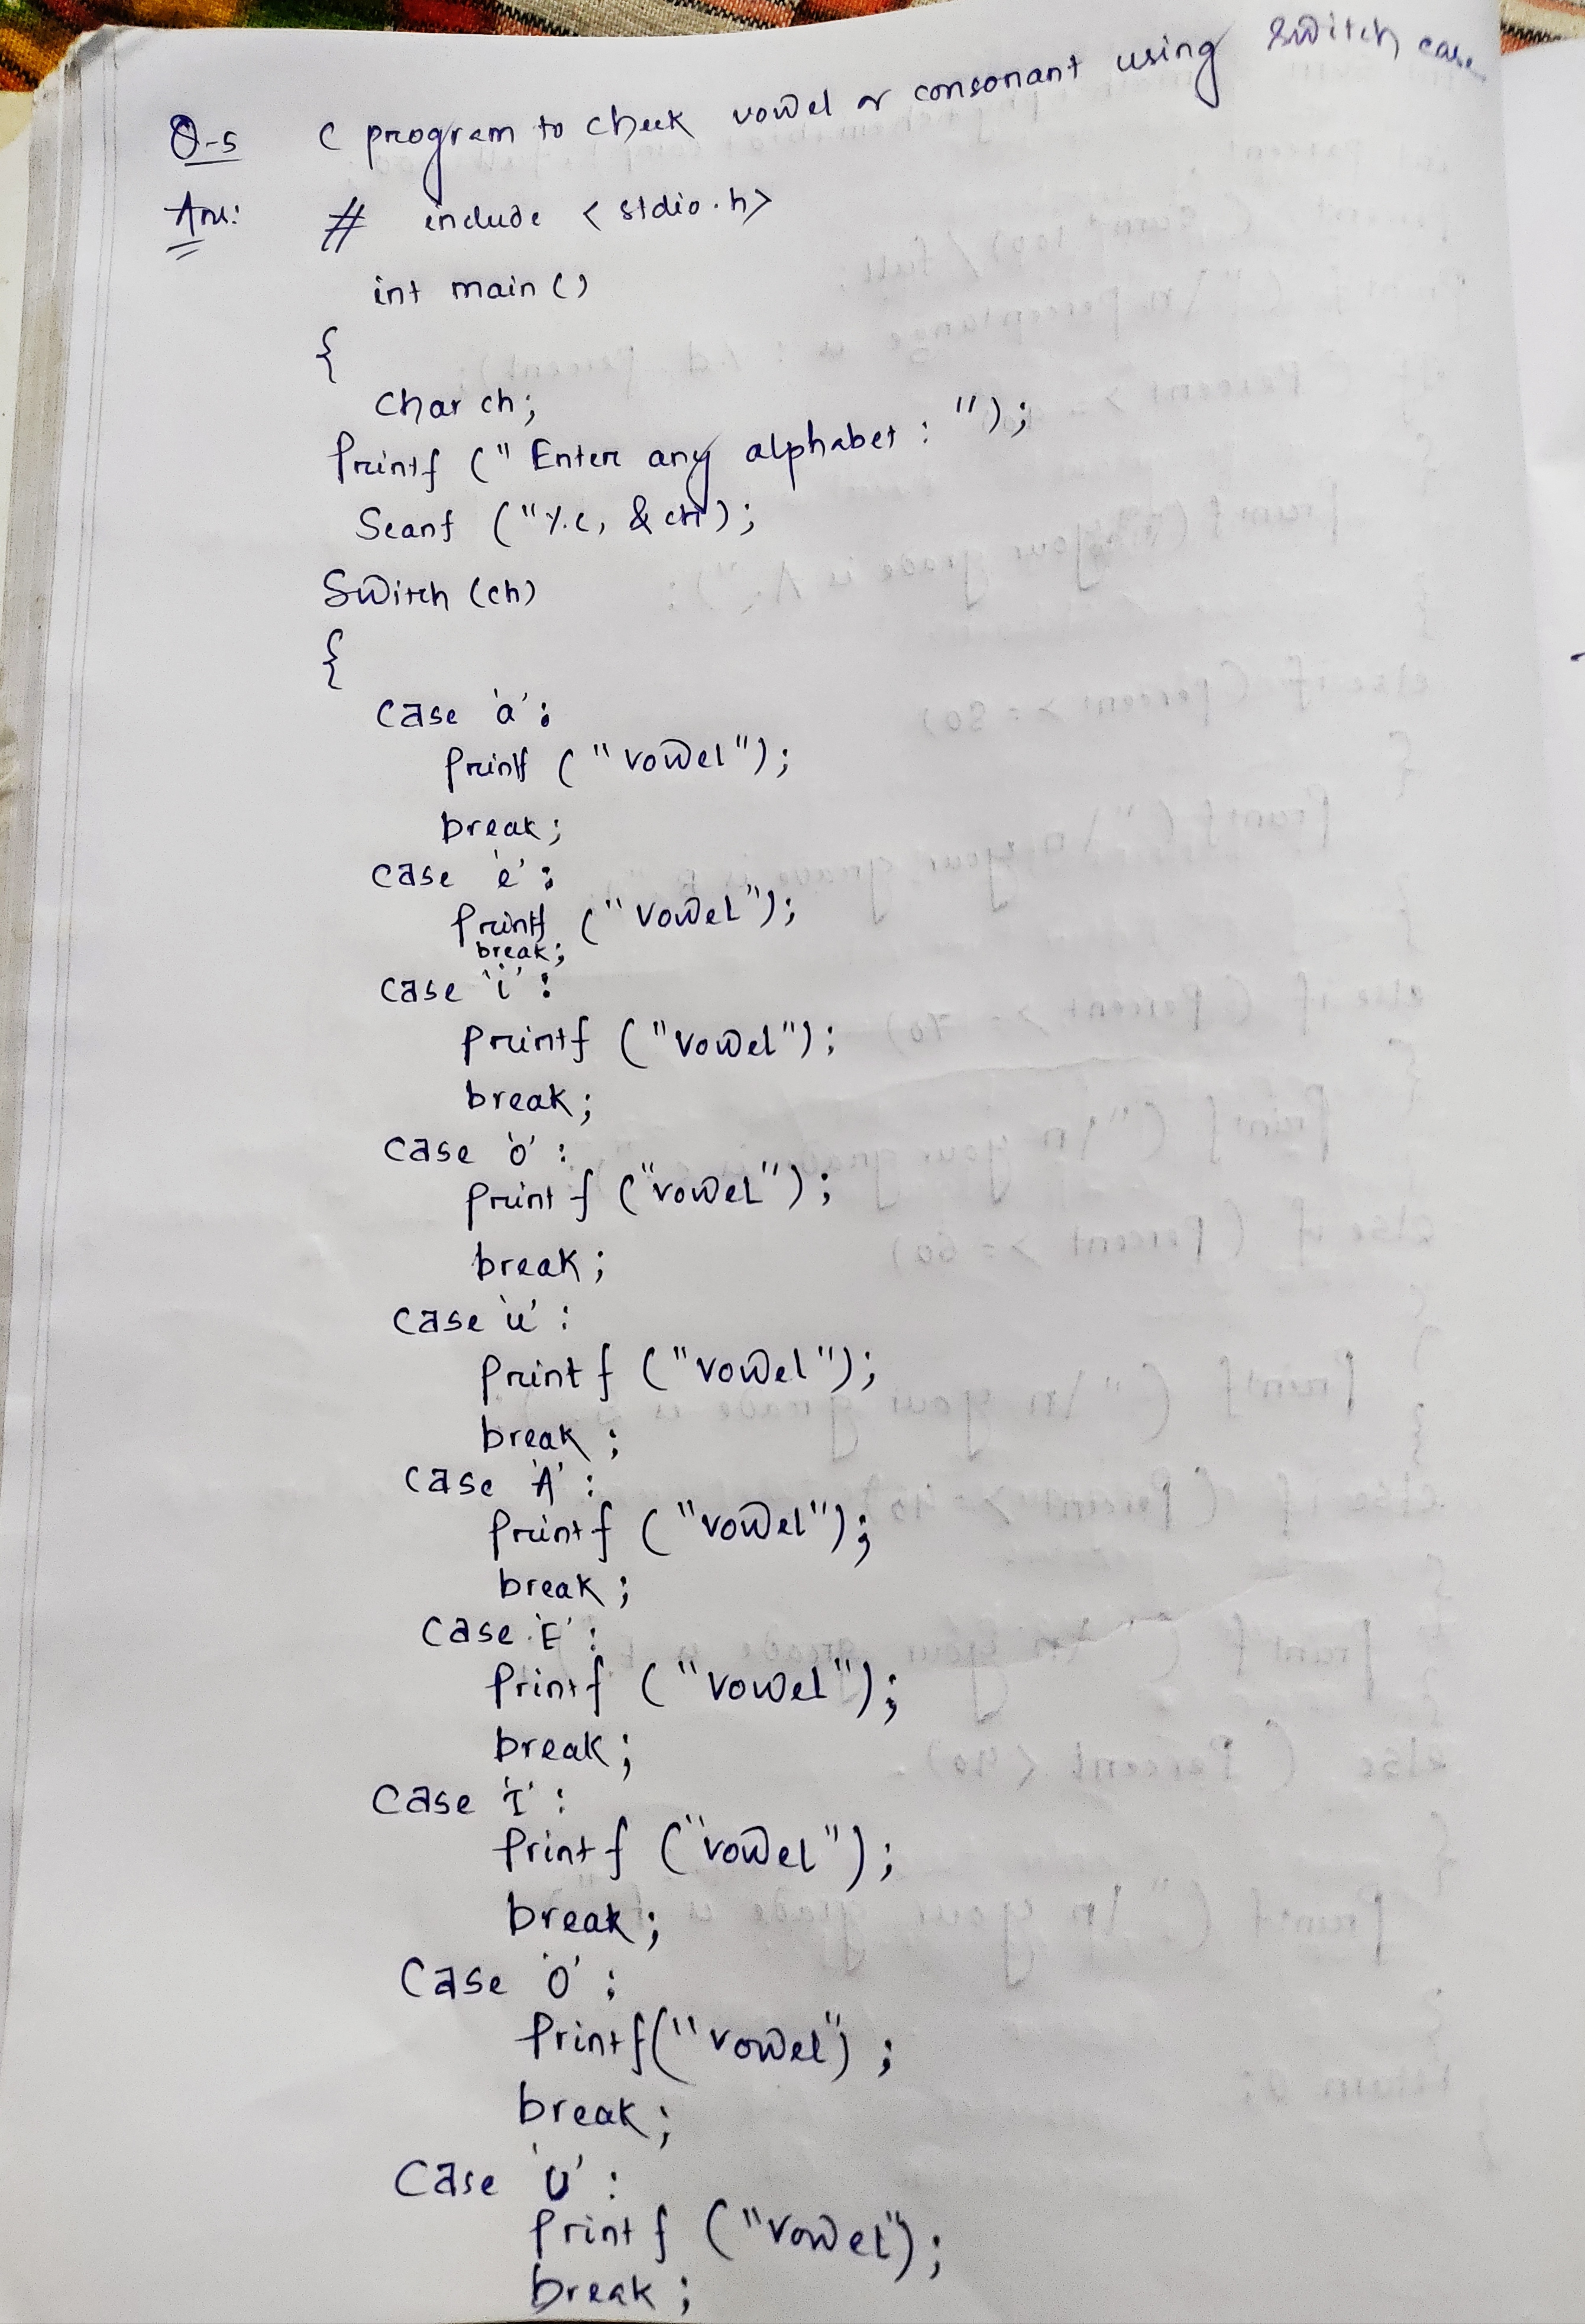 Q-5 C program to check vowel or consonant using switch case
Ans: # include <stdio.h>
int main ()
{
char ch;
Printf (" Enter any alphabet : ");
Scanf ("%c, & ch");
Switch (ch)
{
case 'a':
printf ("vowel");
break;
case 'e':
printf ("vowel");
break;
case 'i':
printf ("vowel");
break;
case 'o':
printf ("vowel");
break;
case 'u':
printf ("vowel");
break;
case 'A':
printf ("vowel");
break;
case 'E':
printf ("vowel");
break;
case 'I':
printf ("vowel");
break;
case 'O':
printf ("vowel");
break;
case 'U':
printf ("vowel");
break;